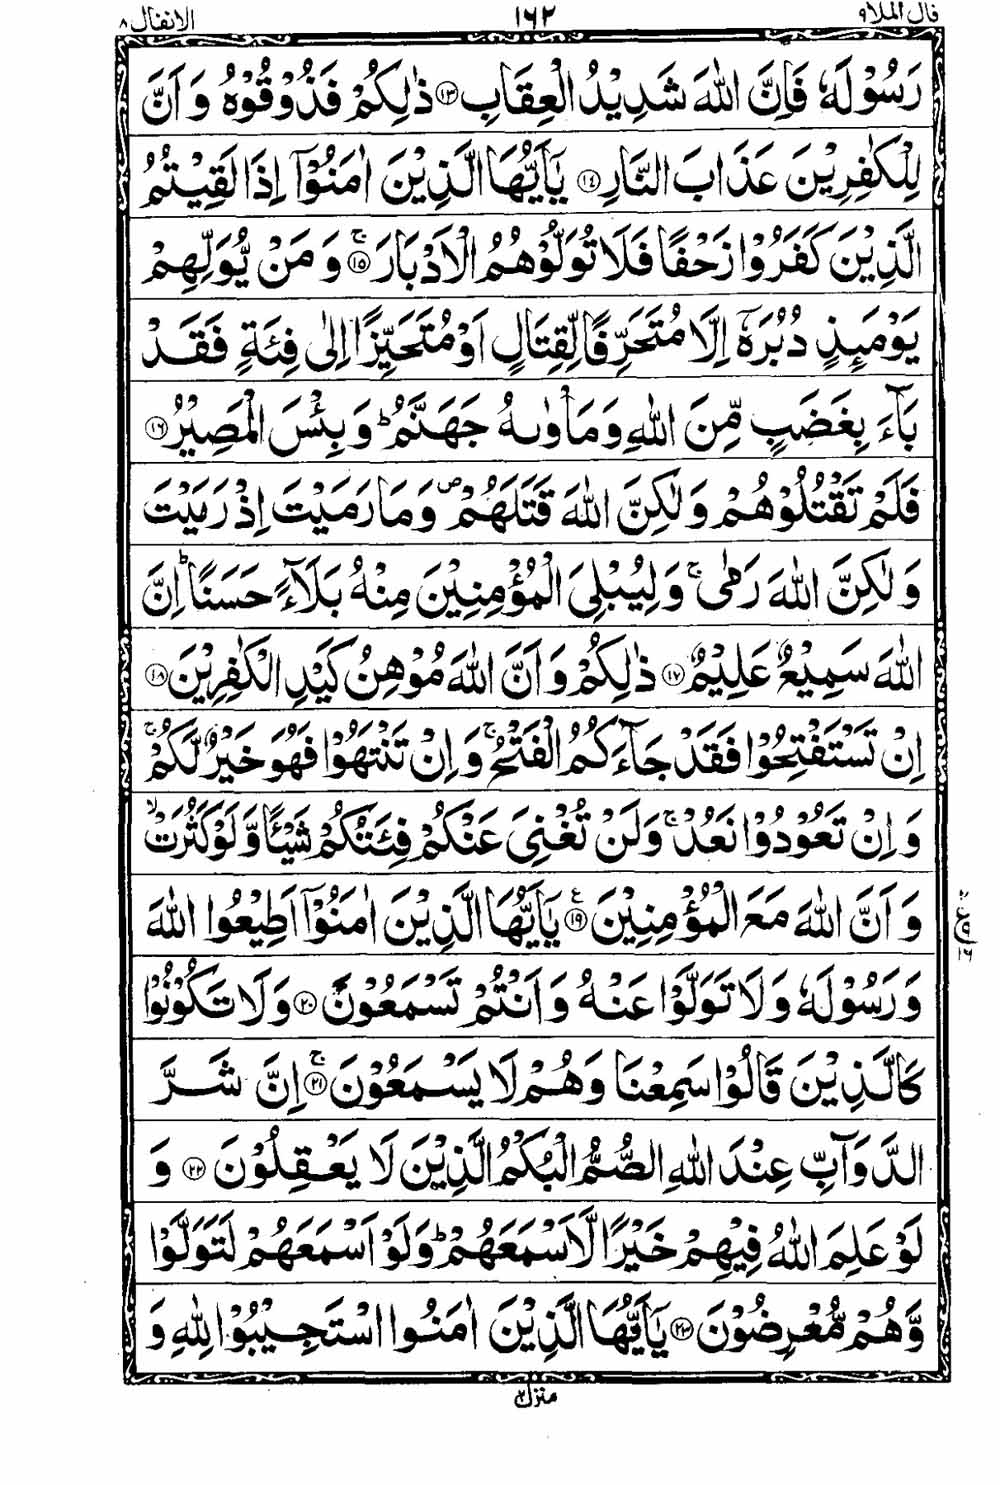 قال الملا ٩ ١٦٢ الانفال ٨
رَسُوْلَهٗ فَاِنَّ اللّٰهَ شَدِيْدُ الْعِقَابِ ۝١٣ ذٰلِكُمْ فَذُوْقُوْهُ وَ اَنَّ
لِلْكٰفِرِيْنَ عَذَابَ النَّارِ ۝١٤ يٰۤاَيُّهَا الَّذِيْنَ اٰمَنُوْۤا اِذَا لَقِيْتُمُ
الَّذِيْنَ كَفَرُوْا زَحْفًا فَلَا تُوَلُّوْهُمُ الْاَدْبَارَ ۝١٥ۚ وَ مَنْ يُّوَلِّهِمْ
يَوْمَىِٕذٍ دُبُرَهٗۤ اِلَّا مُتَحَرِّفًا لِّقِتَالٍ اَوْ مُتَحَيِّزًا اِلٰى فِئَةٍ فَقَدْ
بَآءَ بِغَضَبٍ مِّنَ اللّٰهِ وَ مَاْوٰىهُ جَهَنَّمُ ؕ وَ بِئْسَ الْمَصِيْرُ ۝١٦
فَلَمْ تَقْتُلُوْهُمْ وَ لٰكِنَّ اللّٰهَ قَتَلَهُمْ ۪ وَ مَا رَمَيْتَ اِذْ رَمَيْتَ
وَ لٰكِنَّ اللّٰهَ رَمٰى ۚ وَ لِيُبْلِيَ الْمُؤْمِنِيْنَ مِنْهُ بَلَآءً حَسَنًا ؕ اِنَّ
اللّٰهَ سَمِيْعٌ عَلِيْمٌ ۝١٧ ذٰلِكُمْ وَ اَنَّ اللّٰهَ مُوْهِنُ كَيْدِ الْكٰفِرِيْنَ ۝١٨
اِنْ تَسْتَفْتِحُوْا فَقَدْ جَآءَكُمُ الْفَتْحُ ۚ وَ اِنْ تَنْتَهُوْا فَهُوَ خَيْرٌ لَّكُمْ ۚ
وَ اِنْ تَعُوْدُوْا نَعُدْ ۚ وَ لَنْ تُغْنِيَ عَنْكُمْ فِئَتُكُمْ شَيْـًٔا وَّ لَوْ كَثُرَتْ ۙ
وَ اَنَّ اللّٰهَ مَعَ الْمُؤْمِنِيْنَ ۝١٩ ع يٰۤاَيُّهَا الَّذِيْنَ اٰمَنُوْۤا اَطِيْعُوا اللّٰهَ
ع ١٦
وَ رَسُوْلَهٗ وَ لَا تَوَلَّوْا عَنْهُ وَ اَنْتُمْ تَسْمَعُوْنَ ۝٢٠ وَ لَا تَكُوْنُوْا
كَالَّذِيْنَ قَالُوْا سَمِعْنَا وَ هُمْ لَا يَسْمَعُوْنَ ۝٢١ۚ اِنَّ شَرَّ
الدَّوَآبِّ عِنْدَ اللّٰهِ الصُّمُّ الْبُكْمُ الَّذِيْنَ لَا يَعْقِلُوْنَ ۝٢٢ وَ
لَوْ عَلِمَ اللّٰهُ فِيْهِمْ خَيْرًا لَّاَسْمَعَهُمْ ؕ وَ لَوْ اَسْمَعَهُمْ لَتَوَلَّوْا
وَّ هُمْ مُّعْرِضُوْنَ ۝٢٣ يٰۤاَيُّهَا الَّذِيْنَ اٰمَنُوا اسْتَجِيْبُوْا لِلّٰهِ وَ
منزل ٢